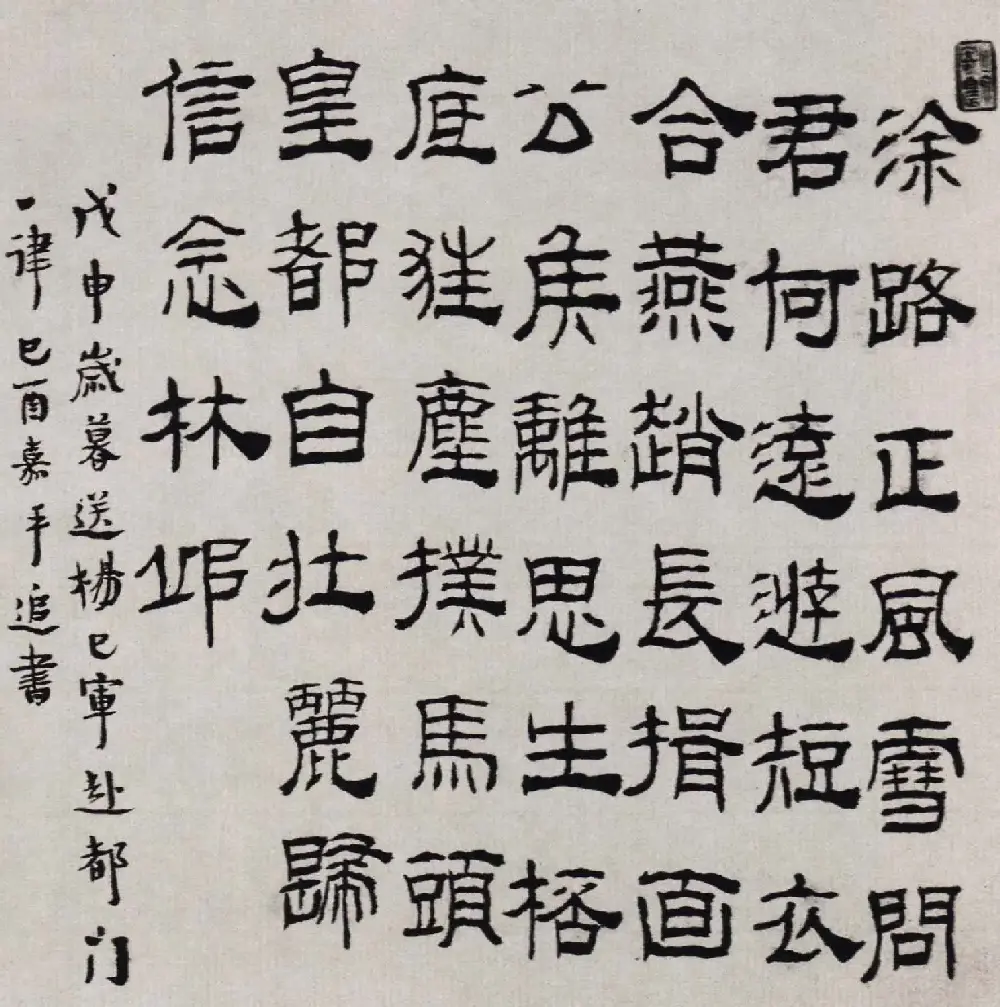 涂路正風雪問
君何遠遊短衣
合燕趙長揖面
公侯離思生桮
底狂塵撲馬頭
皇都自壯麗歸
信念林邱
戊申歲暮送楊己軍赴都门
一律己酉嘉平追書